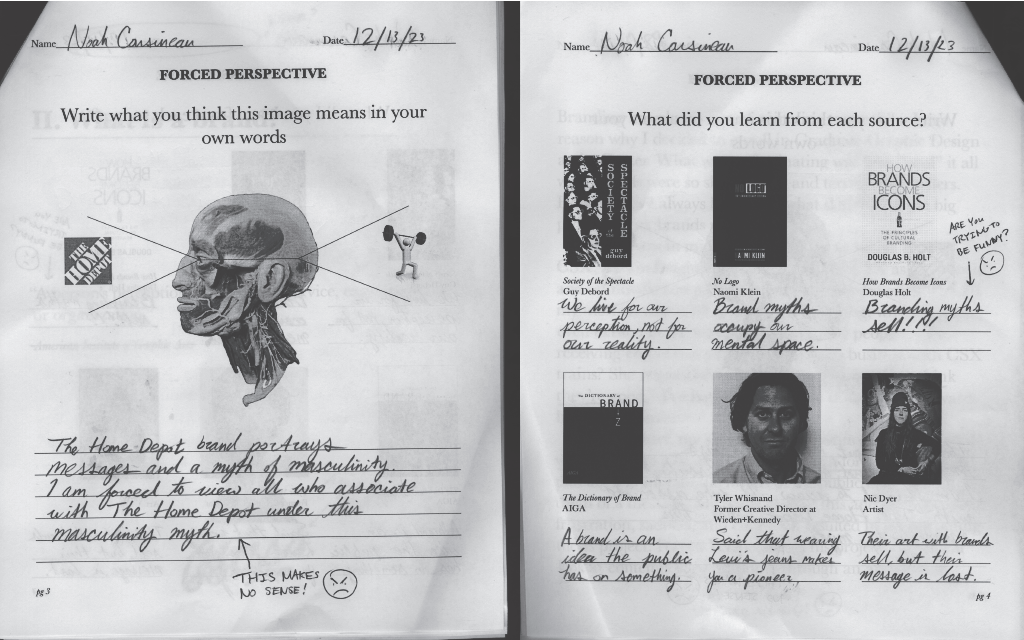 Name Noah Carsineau Date 12/13/23
FORCED PERSPECTIVE
Write what you think this image means in your
own words
THE
HOME
DEPOT
The Home Depot brand portrays
messages and a myth of masculinity.
I am forced to view all who associate
with The Home Depot under this
masculinity myth.
THIS MAKES
NO SENSE!
pg 3
Name Noah Carsineau Date 12/13/23
FORCED PERSPECTIVE
What did you learn from each source?
SOCIETY
of the
SPECTACLE
guy
debord
Society of the Spectacle
Guy Debord
We live for our
perception, not for
our reality.
NO LOGO
NAOMI KLEIN
No Logo
Naomi Klein
Brand myths
occupy our
mental space.
HOW
BRANDS
BECOME
ICONS
THE PRINCIPLES
OF CULTURAL
BRANDING
DOUGLAS B. HOLT
ARE YOU
TRYING TO
BE FUNNY?
How Brands Become Icons
Douglas Holt
Branding myths
sell!!!!
THE DICTIONARY of
BRAND
Z
The Dictionary of Brand
AIGA
A brand is an
idea the public
has on something.
Tyler Whisnand
Former Creative Director at
Wieden+Kennedy
Said that wearing
Levi's jeans makes
you a pioneer.
Nic Dyer
Artist
Their art with brands
sell, but their
message is lost.
pg 4